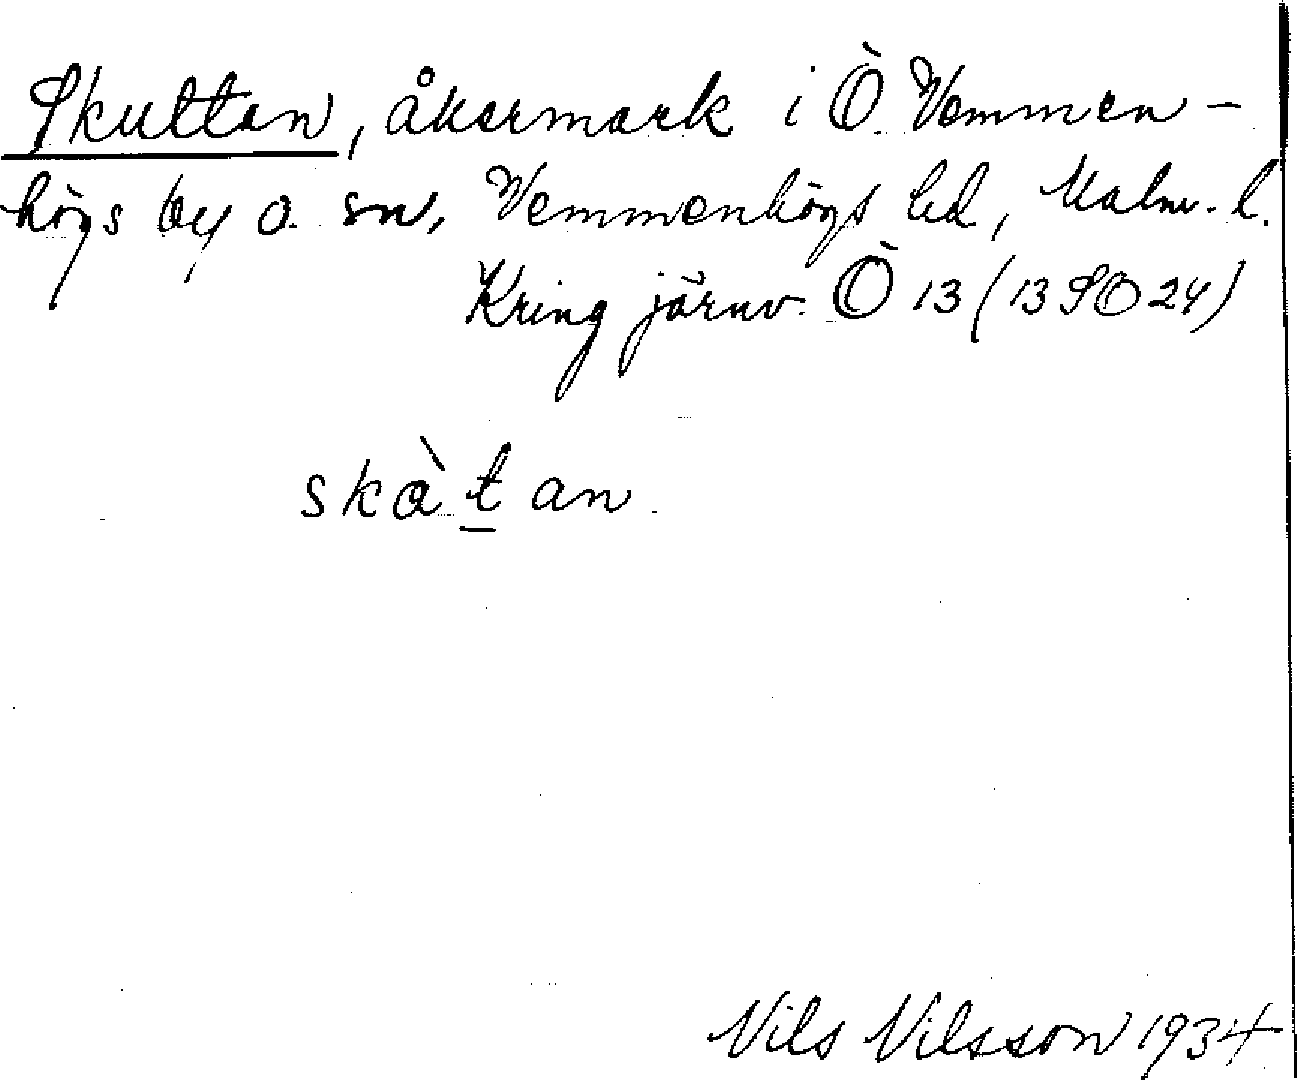 Skuttan, åkermark i Ö. Vemmen-
högs by o. sn, Vemmenhögs hd, Malm. l.
Kring järnv. Ö 13 (13 SO 24)
skàt̲an
Nils Nilsson 1934